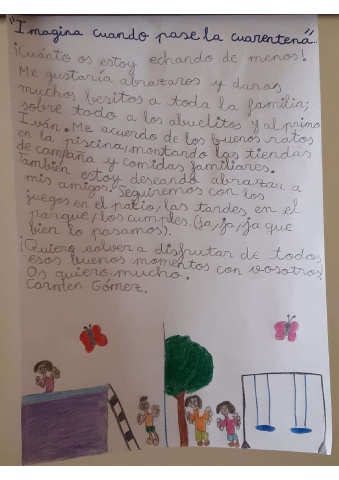 "Imagina cuando pase la cuarentena"...
¡Cuánto os estoy echando de menos!
Me gustaría abrazaros y daros
muchos besitos a toda la familia;
sobre todo a los abuelitos y al primo
Iván. Me acuerdo de los buenos ratos
en la piscina, montando las tiendas
de campaña y comidas familiares.
También estoy deseando abrazar a
mis amigos! Seguiremos con los
juegos en el patio, las tardes en el
parque, los cumples. (ja, ja, ja que
bien lo pasamos).
¡Quiero volver a disfrutar de todos
esos buenos momentos con vosotros!
Os quiero mucho.
Carmen Gómez.